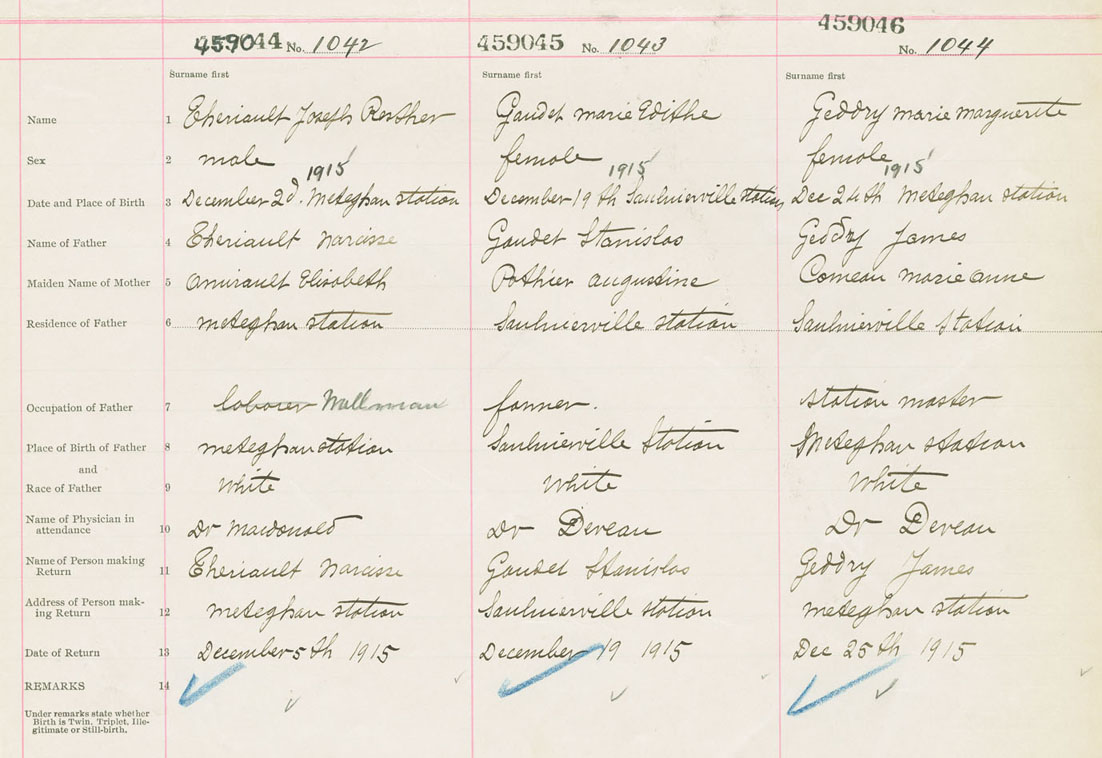 459044 No. 1042 459045 No. 1043 459046 No. 1044
Surname first Surname first Surname first
Name 1 Theriault Joseph Gaudet marie Edithe Geddry marie marguerite
Sex 2 male female female
1915 1915 1915
Date and Place of Birth 3 December 2d. Meteghan station December 19th Saulnierville station Dec 24th Meteghan station
Name of Father 4 Theriault Narcisse Gaudet Stanislas Geddry James
Maiden Name of Mother 5 Amirault Elisabeth Pothier augustine Comeau marie anne
Residence of Father 6 meteghan station Saulnierville station Saulnierville Station
Occupation of Father 7 laborer Millman farmer. station master
Place of Birth of Father 8 meteghan station Saulnierville Station Meteghan station
and
Race of Father 9 White White White
Name of Physician in
attendance 10 Dr Macdonald Dr Deveau Dr Deveau
Name of Person making
Return 11 Theriault Narcisse Gaudet Stanislas Geddry James
Address of Person mak-
ing Return 12 meteghan station Saulnierville station meteghan station
Date of Return 13 December 5th 1915 December 19 1915 Dec 25th 1915
REMARKS 14
Under remarks state whether
Birth is Twin, Triplet, Ille-
gitimate or Still-birth.